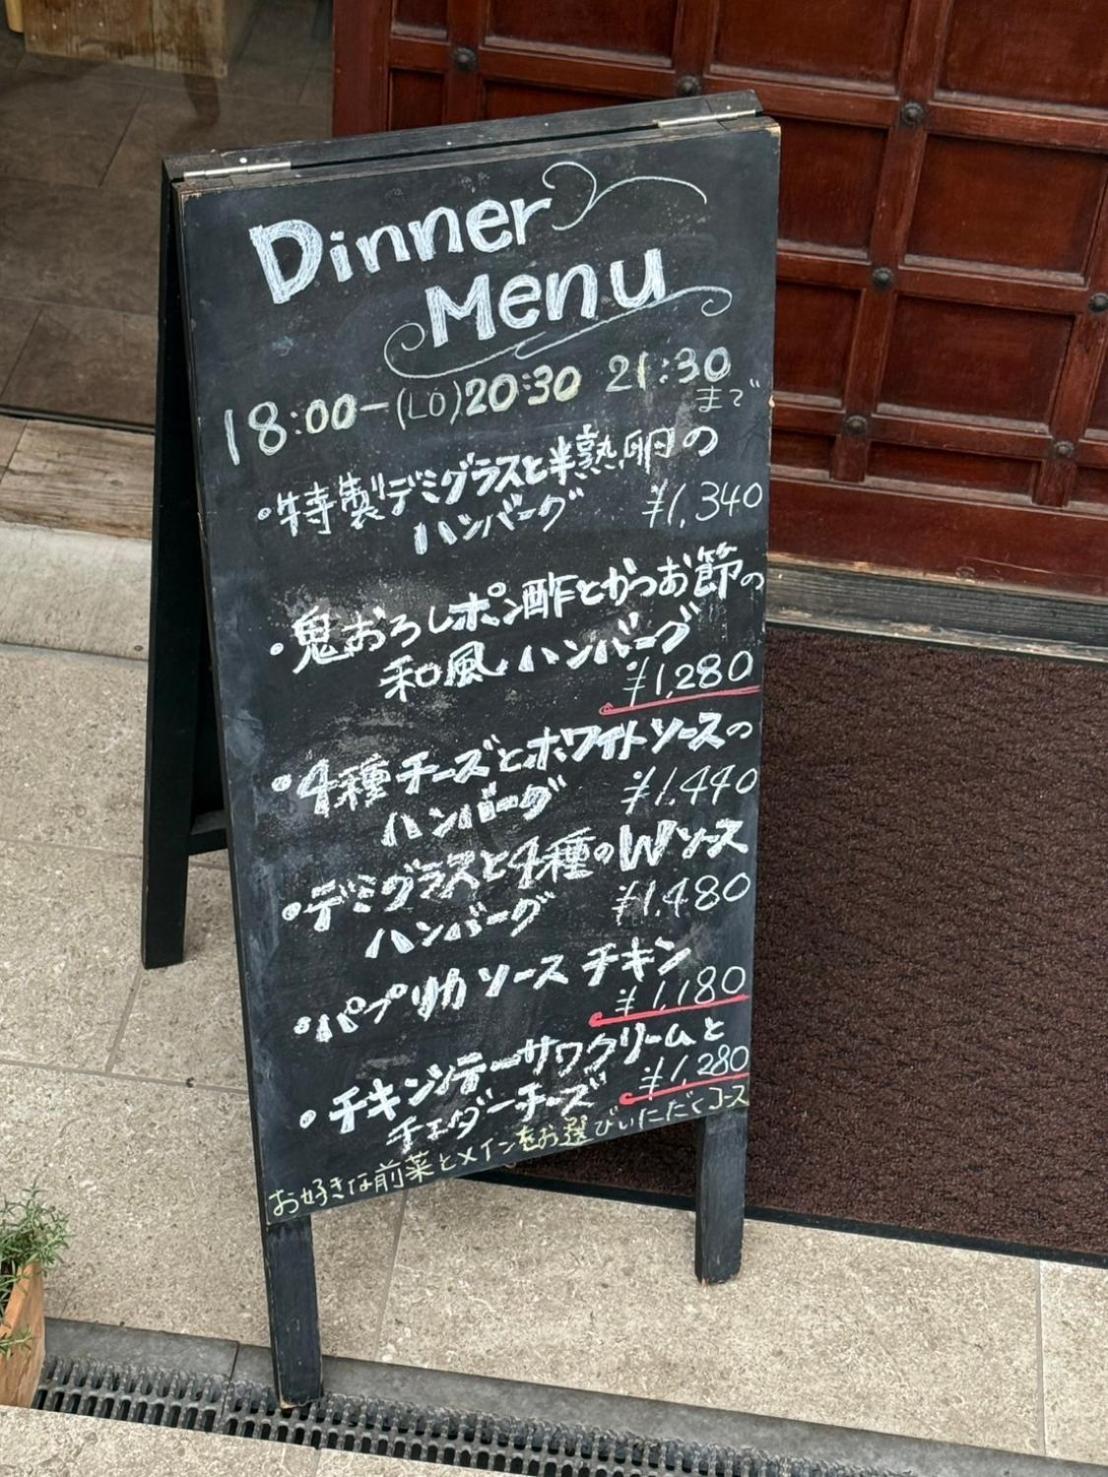 Dinner
Menu
18:00-(LO)20:30 21:30
まで
・特製デミグラスと半熟卵の
ハンバーグ ¥1,340
・鬼おろしポン酢とかつお節の
和風ハンバーグ
¥1,280
・4種チーズとホワイトソースの
ハンバーグ ¥1,440
・デミグラスと4種のWソース
ハンバーグ ¥1,480
・パプリカソースチキン
¥1,180
・チキンシテーサワクリームと
チェダーチーズ ¥1,280
お好きな前菜とメインをお選びいただくコース